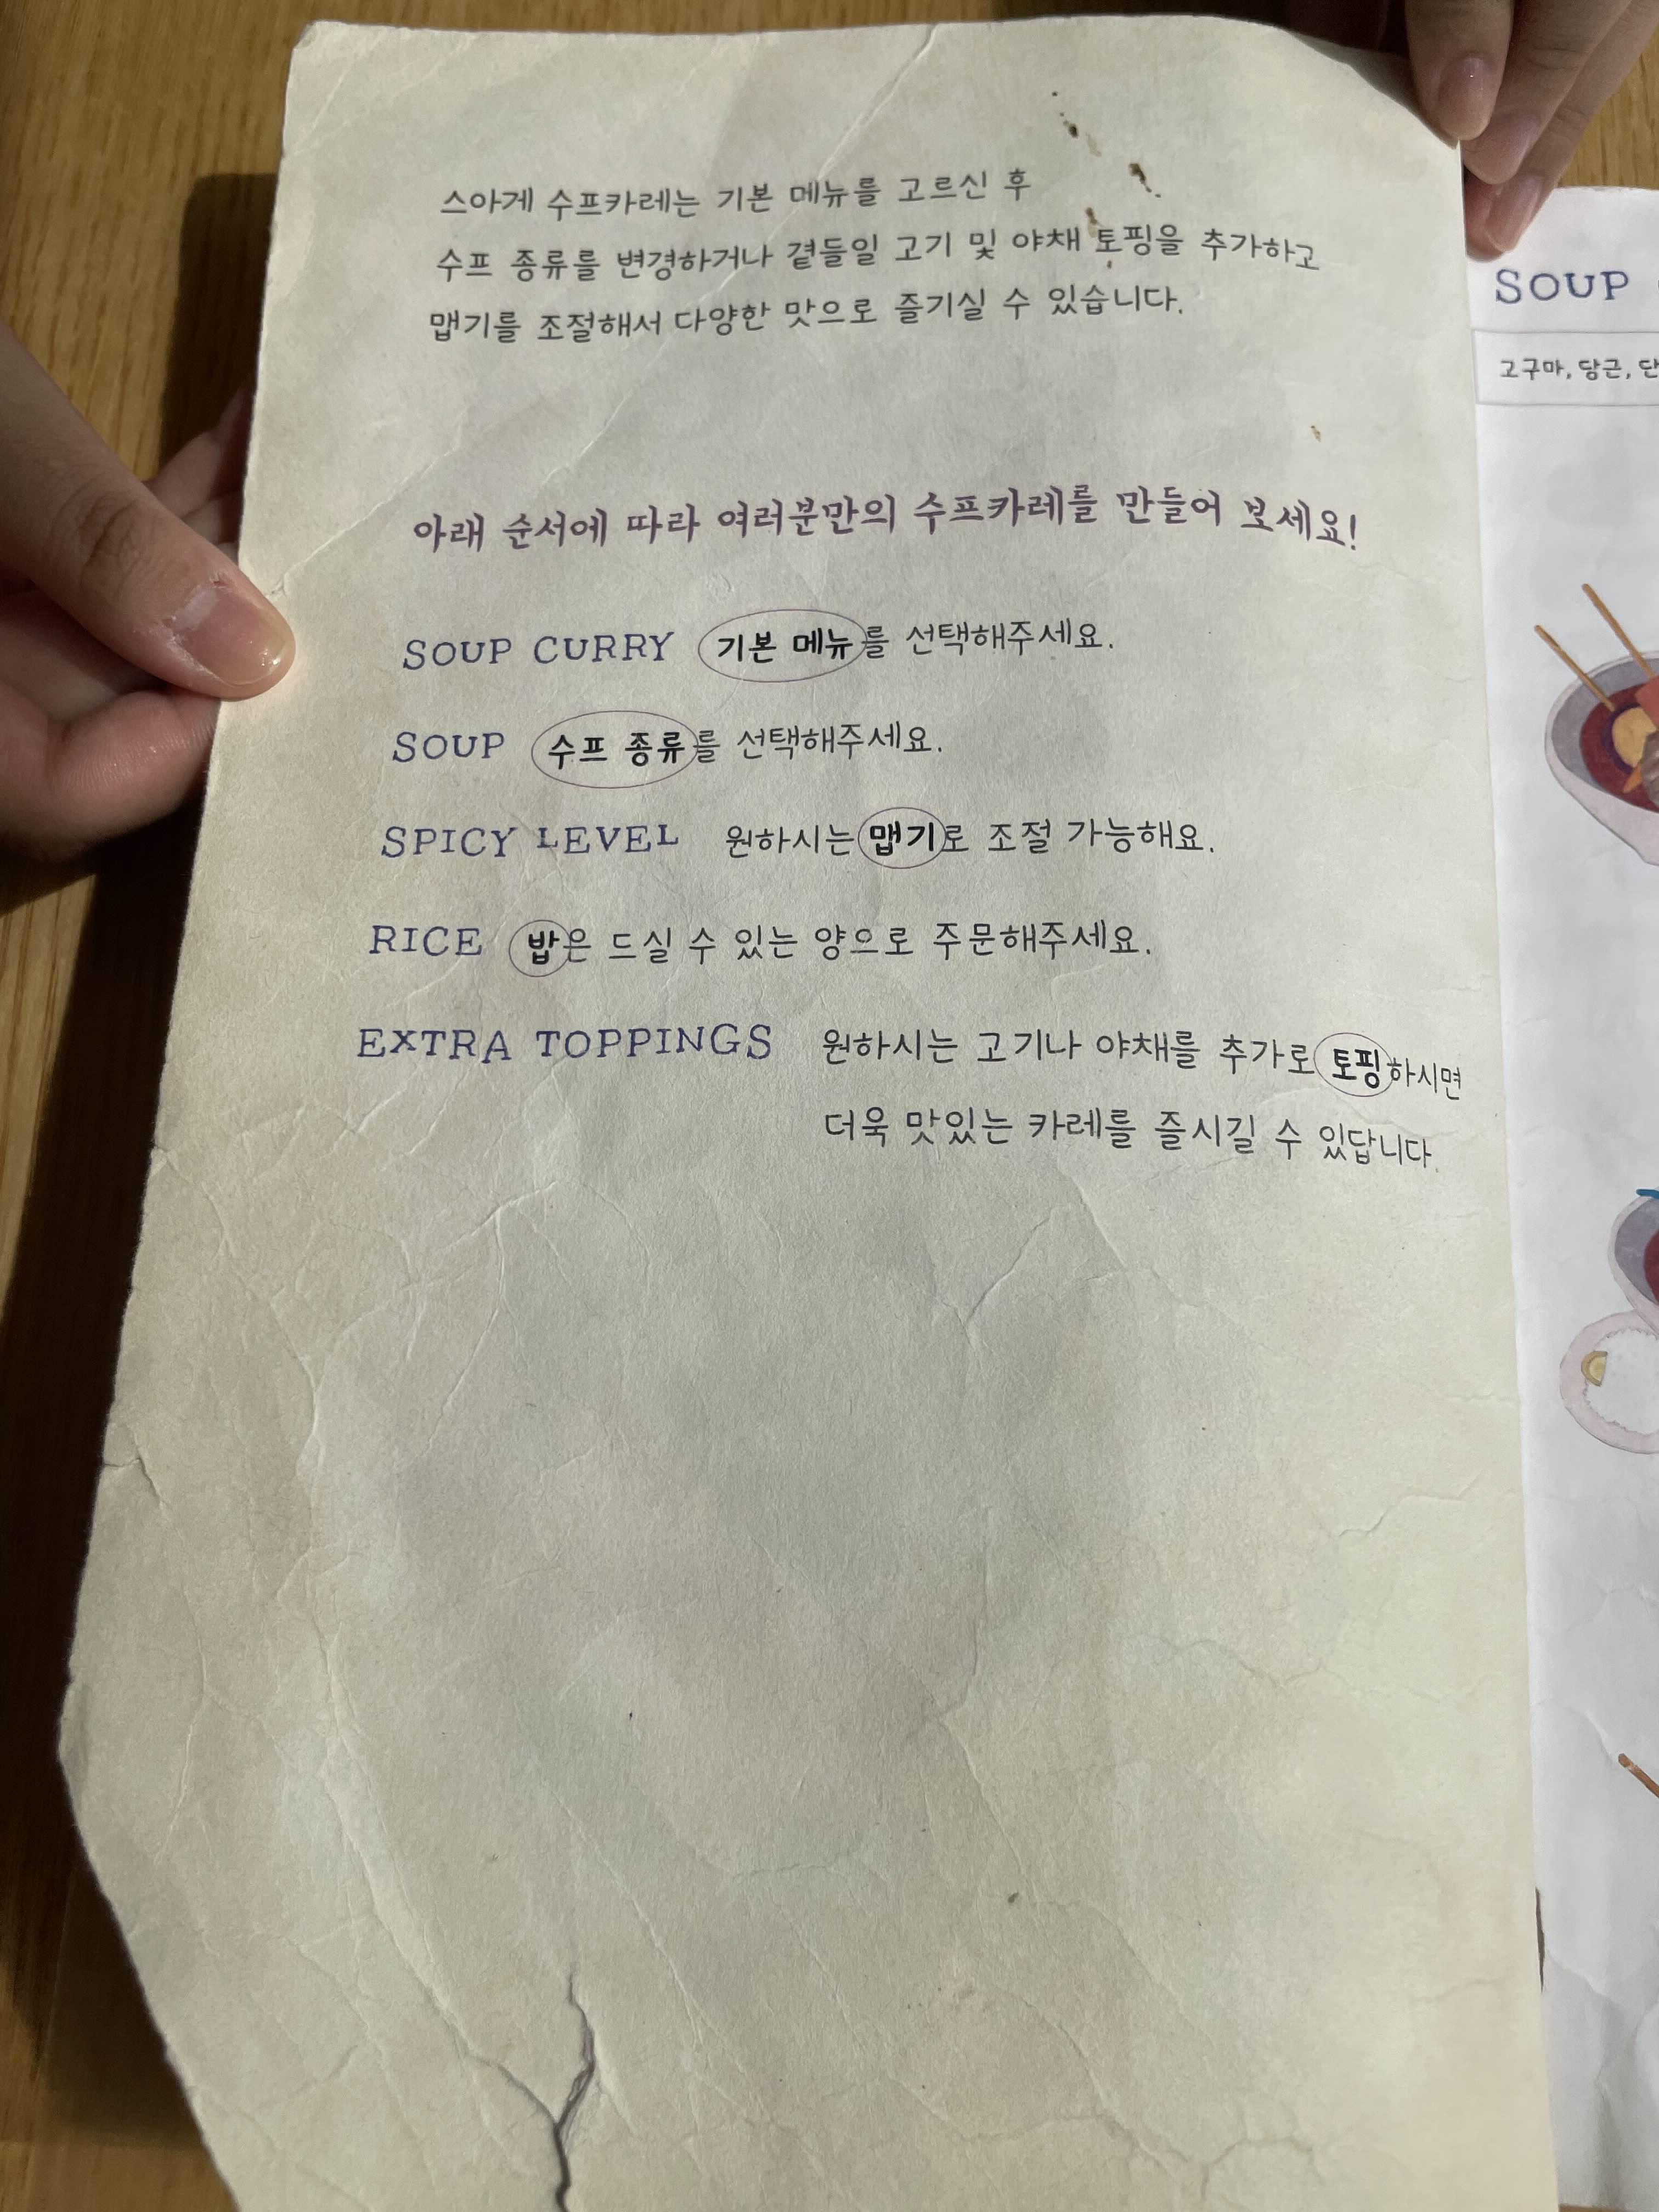 스아게 수프카레는 기본 메뉴를 고르신 후
수프 종류를 변경하거나 곁들일 고기 및 야채 토핑을 추가하고
맵기를 조절해서 다양한 맛으로 즐기실 수 있습니다.
아래 순서에 따라 여러분만의 수프카레를 만들어 보세요!
SOUP CURRY 기본 메뉴를 선택해주세요.
SOUP 수프 종류를 선택해주세요.
SPICY LEVEL 원하시는 맵기로 조절 가능해요.
RICE 밥은 드실 수 있는 양으로 주문해주세요.
EXTRA TOPPINGS 원하시는 고기나 야채를 추가로 토핑하시면
더욱 맛있는 카레를 즐시길 수 있답니다.
SOUP
고구마, 당근, 단